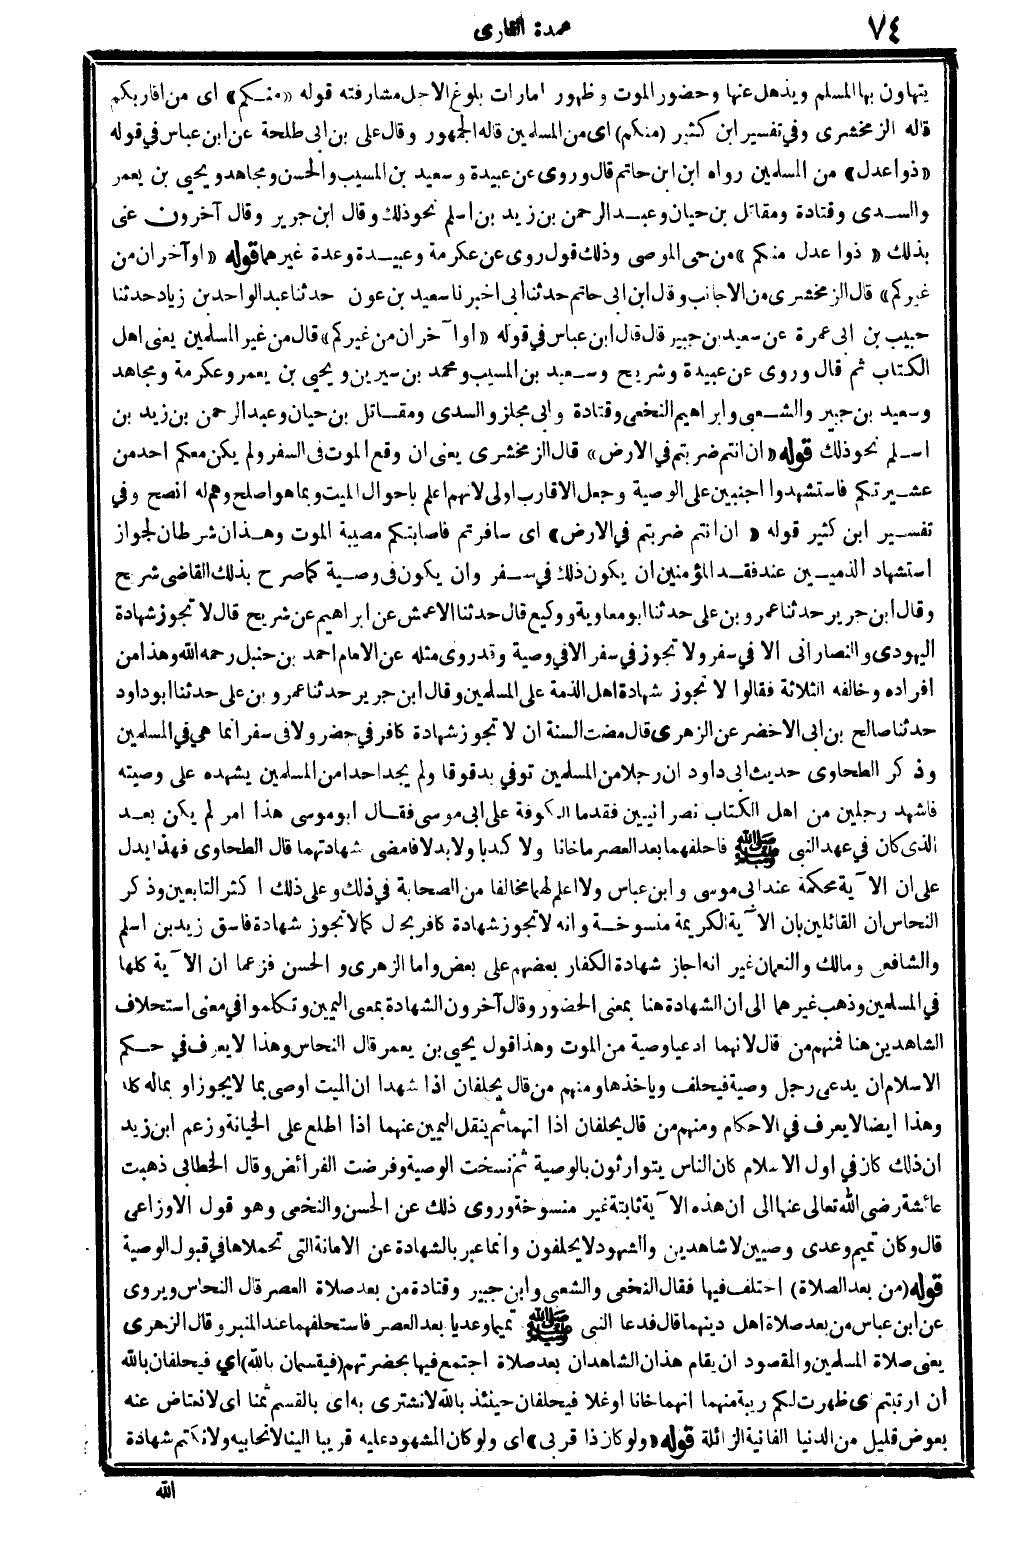 ٧٤
عمدة القارى
يتهاون بها المسلم ويذهل عنها وحضور الموت وظهور امارات بلوغ الاجل مشارفته قوله «منكم» اى من اقاربكم
قاله الزمخشرى وفي تفسير ابن كثير (منكم) اى من المسلمين قاله الجمهور وقال على بن ابى طلحة عن ابن عباس في قوله
«ذوا عدل» من المسلمين رواه ابن ابن حاتم قال وروى عن عبيدة وسعيد بن المسيب والحسن ومجاهد ويحيى بن يعمر
والسدى وقتادة ومقاتل بن حيان وعبد الرحمن بن زيد بن اسلم نحو ذلك وقال ابن جرير وقال آخرون عنى
بذلك « ذوا عدل منكم » من حى الموصى وذلك قول روى عن عكرمة وعبيدة وعدة غيرهما قوله « او آخران من
غيركم» قال الزمخشرى من الاجانب وقال ابن ابى حاتم حدثنا ابى اخبرنا سعيد بن عون حدثنا عبد الواحد بن زياد حدثنا
حبيب بن ابى عمرة عن سعيد بن جبير قال قال ابن عباس في قوله «اوا آخران من غيركم» قال من غير المسلمين يعنى اهل
الكتاب ثم قال وروى عن عبيدة وشريح وسعيد بن المسيب ومحمد بن سيرين ويحيى بن يعمر وعكرمة ومجاهد
وسعيد بن جبير والشعبى وابراهيم النخعى وقتادة وابى مجلز والسدى ومقاتل بن حيان وعبد الرحمن بن زيد بن
اسلم نحو ذلك قوله «ان انتم ضربتم في الارض» قال الزمخشرى يعنى ان وقع الموت فى السفر ولم يكن معكم احد من
عشيرتكم فاستشهدوا اجنبيين على الوصية وجعل الاقارب اولى لانهم اعلم باحوال الميت وبما هو اصلح وهم له انصح وفي
تفسير ابن كثير قوله « ان انتم ضربتم في الارض» اى سافرتم فاصابتكم مصيبة الموت وهذان شرطان لجواز
استشهاد الذميين عند فقد المؤمنين ان يكون ذلك في سفر وان يكون فى وصية كما صرح بذلك القاضى شريح
وقال ابن جرير حدثنا عمرو بن على حدثنا ابو معاوية ووكيع قال حدثنا الاعمش عن ابراهيم عن شريح قال لا تجوز شهادة
اليهودى والنصارانى الا في سفر ولا تجوز في سفر الا في وصية وقد روى مثله عن الامام احمد بن حنبل رحمه الله وهذا من
افراده وخالفه الثلاثة فقالوا لا تجوز شهادة اهل الذمة على المسلمين وقال ابن جرير حدثنا عمرو بن على حدثنا ابو داود
حدثنا صالح بن ابى الاخضر عن الزهرى قال مضت السنة ان لا تجوز شهادة كافر في حضر ولا فى سفر انما هي في المسلمين
وذكر الطحاوى حديث ابى داود ان رجلا من المسلمين توفي بدقوقا ولم يجد احدا من المسلمين يشهده على وصيته
فاشهد رجلين من اهل الكتاب نصرانيين فقدما الكوفة على ابى موسى فقال ابو موسى هذا امر لم يكن بعد
الذى كان في عهد النبى ﷺ فاحلفهما بعد العصر ما خانا ولا كذبا ولا بدلا فامضى شهادتهما قال الطحاوى فهذا يدل
على ان الآية محكمة عند ابى موسى وابن عباس ولا اعلم لهما مخالفا من الصحابة في ذلك وعلى ذلك اكثر التابعين وذكر
النحاس ان القائلين بان الآية الكريمة منسوخة وانه لا تجوز شهادة كافر بحال كما لا تجوز شهادة فاسق زيد بن اسلم
والشافعى ومالك والنعمان غير انه اجاز شهادة الكفار بعضهم على بعض واما الزهرى والحسن فزعما ان الآية كلها
في المسلمين وذهب غيرهما الى ان الشهادة هنا بمعنى الحضور وقال آخرون الشهادة بمعنى اليمين وتكلموا في معنى استحلاف
الشاهدين هنا فمنهم من قال لانهما ادعيا وصية من الموت وهذا قول يحيى بن يعمر قال النحاس وهذا لا يعرف في حكم
الاسلام ان يدعى رجل وصية فيحلف وياخذها ومنهم من قال يحلفان اذا شهدا ان الميت اوصى بما لا يجوز او بماله كله
وهذا ايضا لا يعرف في الاحكام ومنهم من قال يحلفان اذا اتهما ثم ينقل اليمين عنهما اذا اطلع على الخيانة وزعم ابن زيد
ان ذلك كان في اول الاسلام كان الناس يتوارثون بالوصية ثم نسخت الوصية وفرضت الفرائض وقال الخطابى ذهبت
عائشة رضى الله تعالى عنها الى ان هذه الآية ثابتة غير منسوخة وروى ذلك عن الحسن والنخعى وهو قول الاوزاعى
قال وكان تميم وعدى وصيين لا شاهدين والشهود لا يحلفون وانما عبر بالشهادة عن الامانة التى تحملاها في قبول الوصية
قوله (من بعد الصلاة) اختلف فيها فقال النخعى والشعبى وابن جبير وقتادة من بعد صلاة العصر قال النحاس ويروى
عن ابن عباس من بعد صلاة اهل دينهما قال فدعا النبى ﷺ تميما وعديا بعد العصر فاستحلفهما عند المنبر وقال الزهرى
يعنى صلاة المسلمين والمقصود ان يقام هذان الشاهدان بعد صلاة اجتمع فيها بحضرتهم (فيقسمان بالله) اي فيحلفان بالله
أن ارتبتم ى ظهرت لكم ريبة منهما انهما خانا او غلا فيحلفان حينئذ بالله لا نشترى به اى بالقسم ثمنا اى لا نعتاض عنه
بعوض قليل من الدنيا الفانية الزائلة قوله «ولو كان ذا قربى» اى ولو كان المشهود عليه قريبا الينا لا نحابيه ولا نكتم شهادة
الله